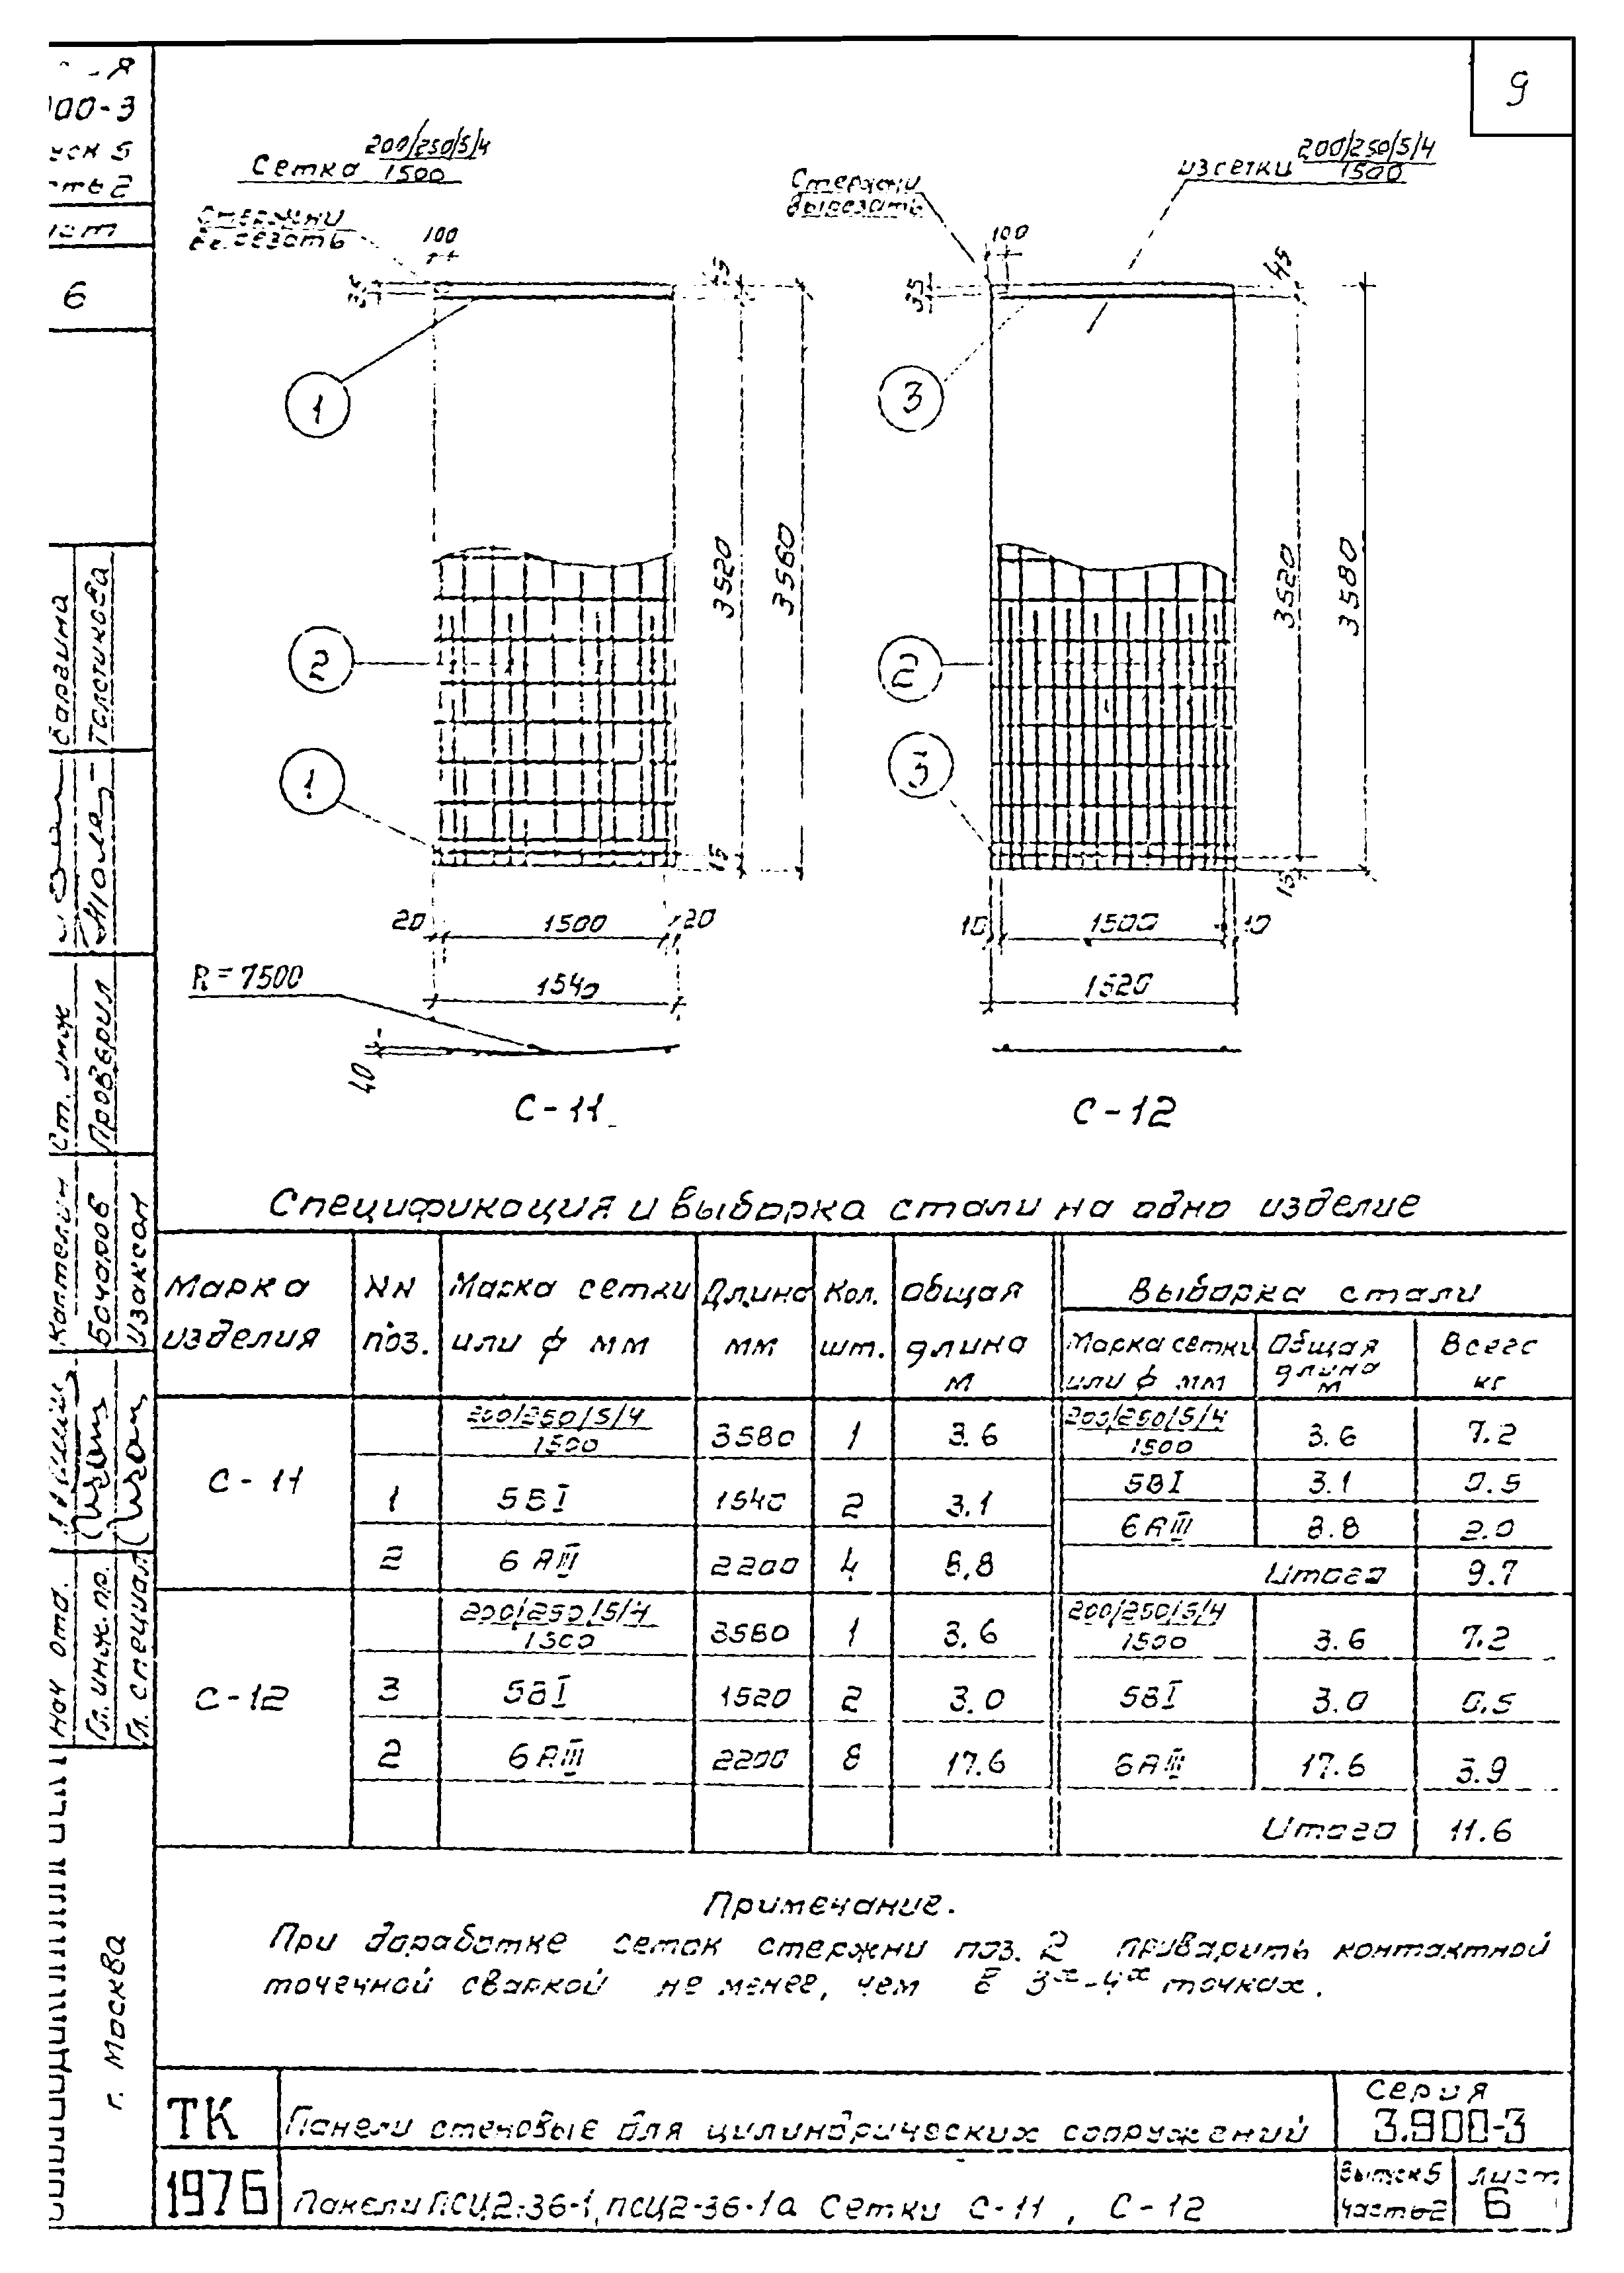 9
00-3
6
Сетка 200/250/5/4
1500
Стержни
100
Стержни
вырезать
100
из сетки 200/250/5/4
1500
45
35
1
3
3520
3560
3520
3580
2
2
1
3
15
15
20 1500 20
10 1500 10
1540
1520
R=7500
40
С-11
С-12
Спецификация и выборка стали на одно изделие
Марка изделия
NN поз.
Марка сетки или ф мм
Длина мм
Кол. шт.
Общая длина м
Выборка стали
Марка сетки или ф мм
Общая длина м
Всего кг
С-11
200/250/5/4 1500 3580 1 3.6 200/250/5/4 1500 3.6 7.2
1 5ВI 1540 2 3.1 5ВI 3.1 0.5
2 6АIII 2200 4 8.8 6АIII 8.8 2.0
Итого 9.7
С-12
200/250/5/4 1500 3580 1 3.6 200/250/5/4 1500 3.6 7.2
3 5ВI 1520 2 3.0 5ВI 3.0 0.5
2 6АIII 2200 8 17.6 6АIII 17.6 3.9
Итого 11.6
Примечание.
При доработке сеток стержни поз. 2 приварить контактной
точечной сваркой не менее, чем в 3х-4х точках.
ТК
1976
Панели стеновые для цилиндрических сооружений
Панели ПСЦ2-36-1, ПСЦ2-36-1а Сетки С-11, С-12
Серия
3.900-3
Выпуск 5
часть 2
Лист
6
Нач отд.
Гл. инж. пр.
Гл. специал
Каптелин
Бочаров
Изаксон
Ст. инж
Проверил
г. Москва